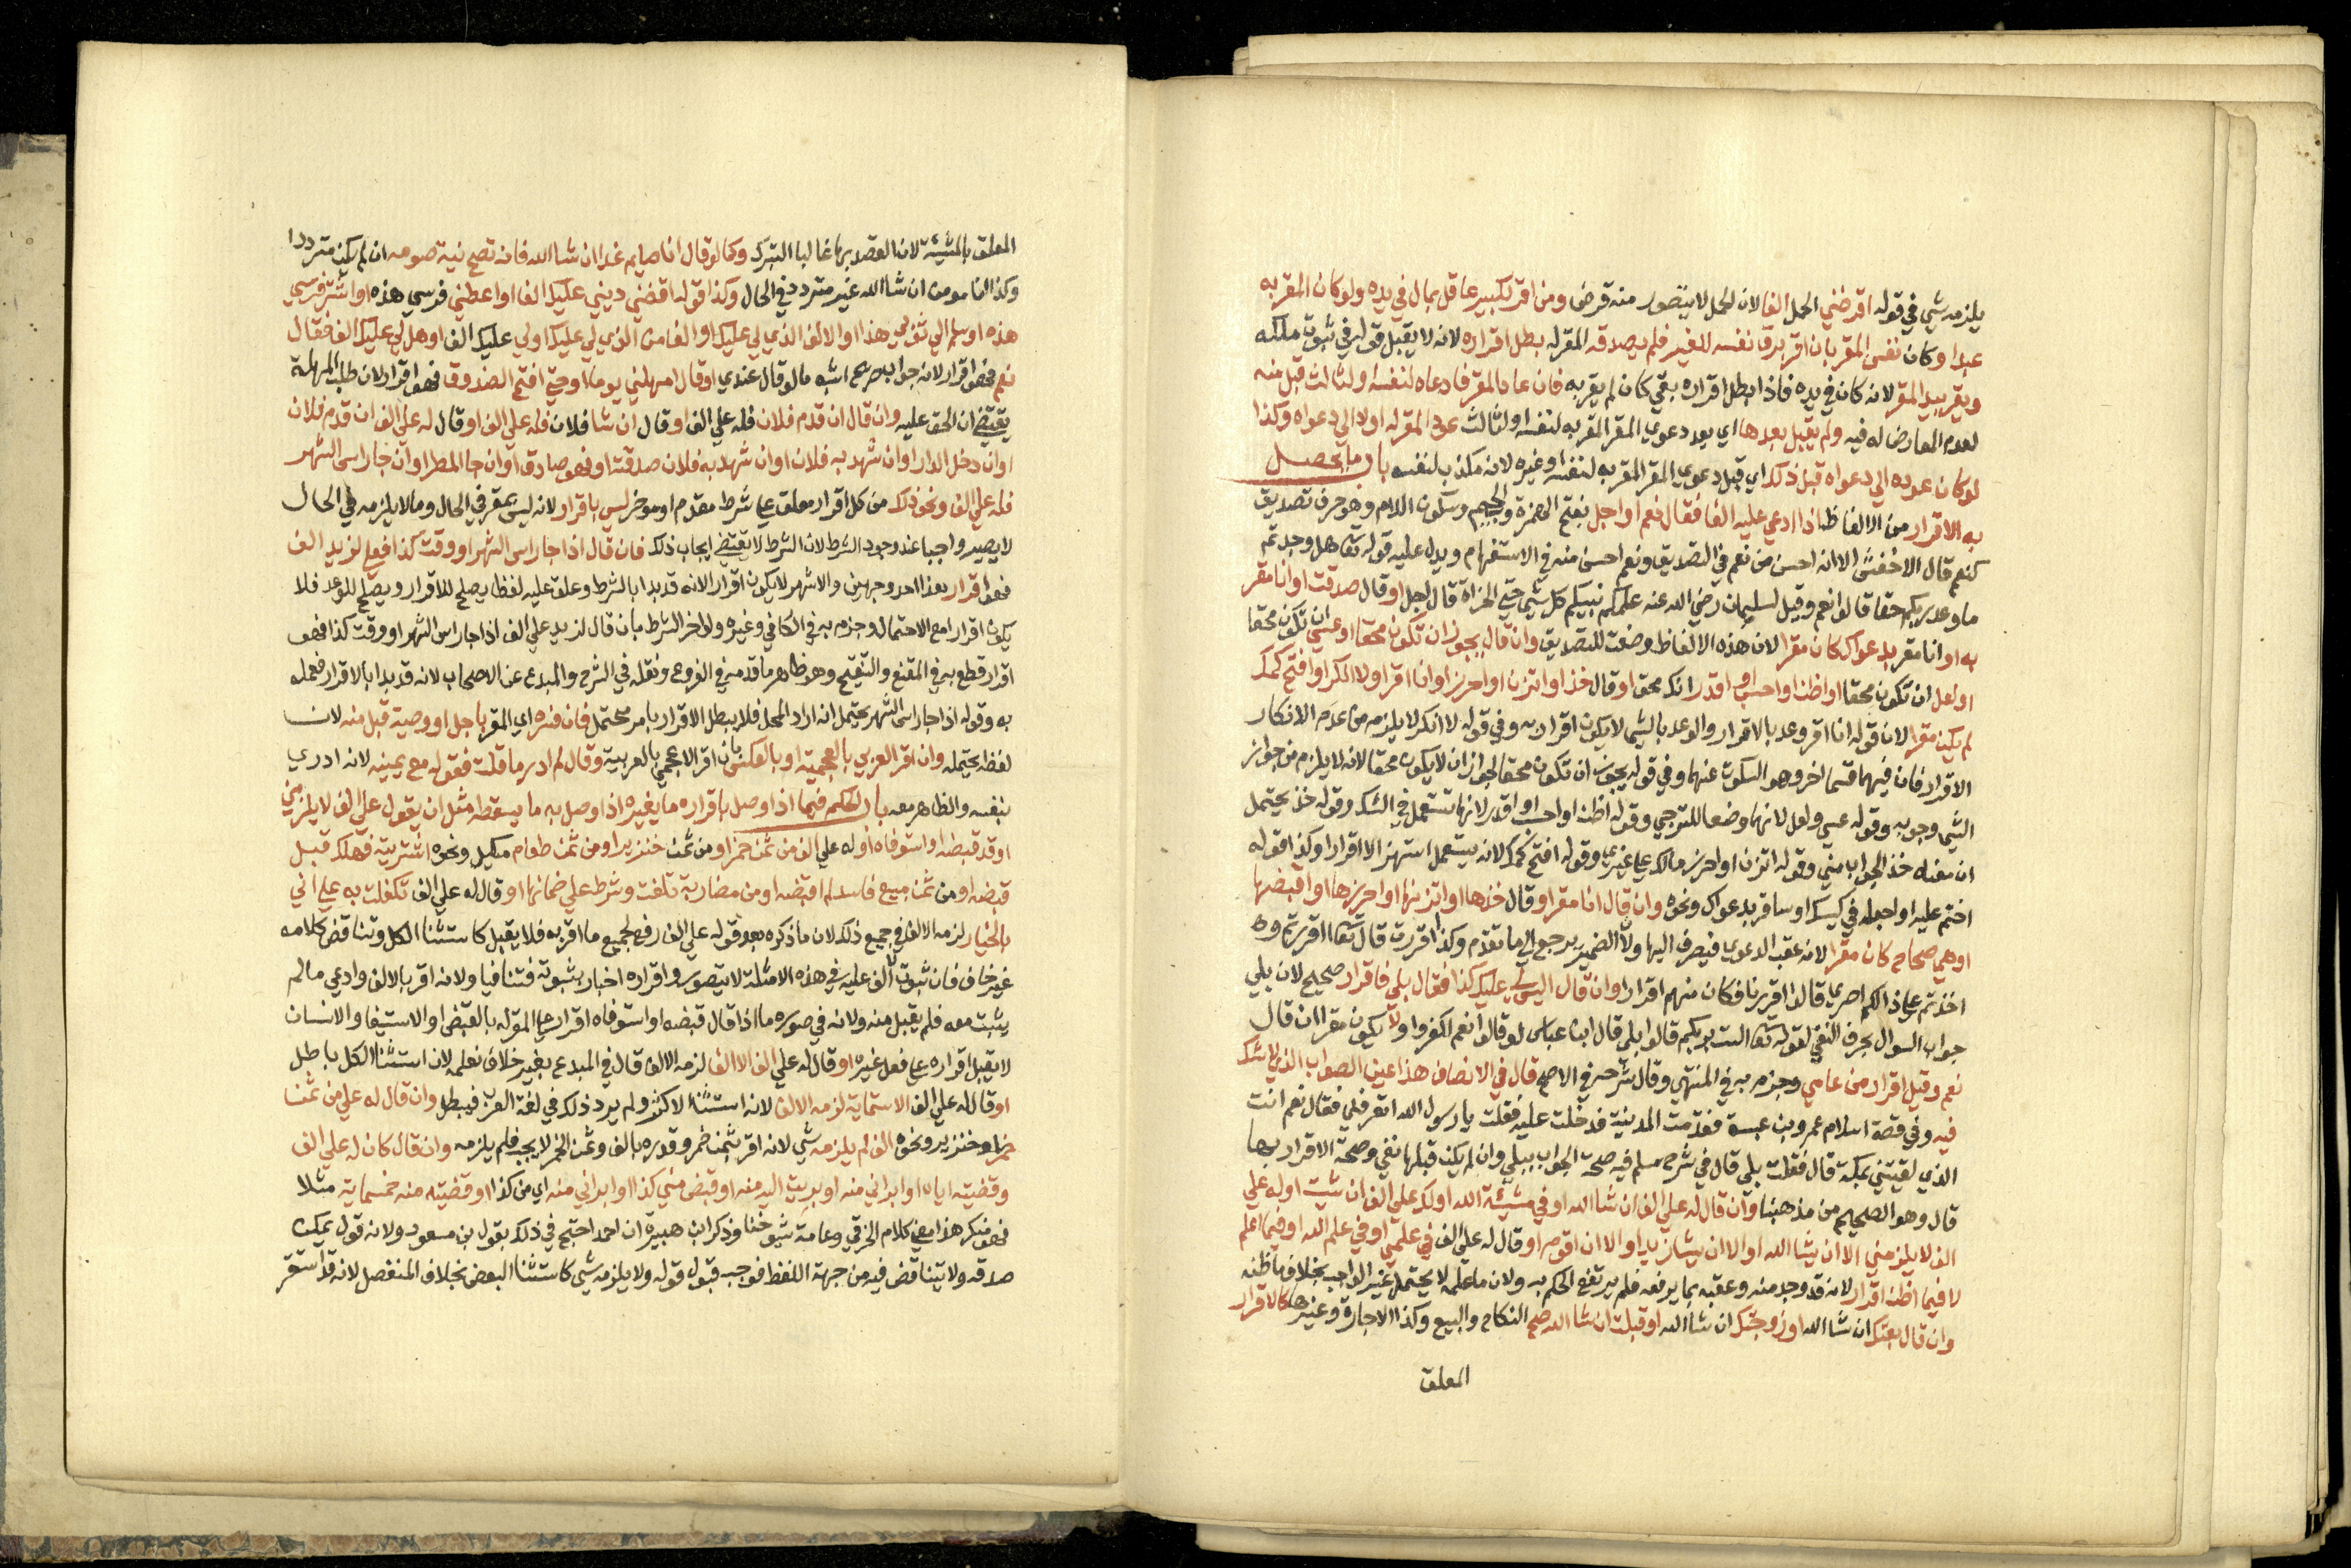 يلزمه شي في قوله اقرضني الحمل الفا لان الحمل لا يتصور منه قرض ومن اقر لكبير عاقل بمال في يده ولو كان المقر به
عبدا او كان نفس المقر بان اقر برق نفسه للغير فلم يصدقه المقر له بطل اقراره لانه لا يقبل قوله في ثبوت ملكه
ويقر بيد المقر لانه كان في يده فاذا بطل اقراره بقي كان لم يقر به فان عاد المقر فادعاه لنفسه او لثالث قبل منه
لعدم المعارض له فيه ولم يقبل بعدها اي بعد دعوي المقر المقر به لنفسه او لثالث عود المقر له اولا الي دعواه وكذا
لو كان عوده الي دعواه قبل ذلك اي قبل دعوي المقر المقر به لنفسه او غيره لانه مكذب لنفسه باب ما يحصل
به الاقرار من الالفاظ اذا ادعي عليه الفا فقال نعم او اجل بفتح الهمزة والجيم وسكون اللام وهو حرف تصديق
كنعم قال الاخفش الا انه احسن من نعم في التصديق ونعم احسن منه في الاستفهام ويدل عليه قوله تعا هل وجدتم
ما وعد ربكم حقا قالوا نعم وقيل لسليمان رضي الله عنه علمكم نبيكم كل شي حتي الخراة قال اجل او قال صدقت او انا مقر
به او انا مقر بدعواك كان مقرا لان هذه الالفاظ وضعت للتصديق وان قال يجوز ان تكون محقا او عسي ان تكون محقا
او لعل ان تكون محقا او اظن او احسب او اقدر انك محق او قال خذ او اتزن او احرز او انا اقر او لا انكر او افتح كمك
لم يكن مقرا لان قوله انا اقر وعد بالاقرار والوعد بالشي لا يكون اقرارا به وفي قوله لا انكر لا يلزمه من عدم الانكار
الاقرار فان فيهما قسما اخر وهو السكوت عنهما وفي قوله يجوز ان تكون محقا لجواز ان لا يكون محقا لانه لا يلزم من جواز
الشي وجوبه وقوله عسي ولعل لانهما وضعا للترجي وقوله اظن او احسب او اقدر لانها تستعمل في الشك وقوله خذ يحتمل
ان معناه خذ الجواب مني وقوله اتزن او احرز مالك علي غيري وقوله افتح كمك لانه يستعمل استهزا لا اقرارا وكذا قوله
اختم عليه او اجعله في كيسك او ساقر بدعواك ونحوه وان قال انا مقر او قال خذها او اتزنها او احرزها او اقبضها
او هي صحاح كان مقرا لانه عقب الدعوي فيصرف اليها ولان الضمير يرجع الي ما تقدم وكذا اقررت قال تعا ااقررتم و
اخذتم علي ذالكم اصري قالوا اقررنا فكان منهم اقرارا وان قال اليس لي عليك كذا فقال بلي فاقرار صحيح لان بلي
جواب السوال بحرف النفي لقوله تعا الست بربكم قالوا بلي قال ابن عباس لو قالوا نعم لكفروا ولا يكون مقرا ان قال
نعم وقيل اقرار من عامي وجزم به في المنتهي وقال شرحه في الاصح قال في الانصاف هذا عين الصواب الذي لا شك
فيه وفي قصة اسلام عمرو بن عبسة فقدمت المدينة فدخلت عليه فقلت يا رسول الله اتعرفني فقال نعم انت
الذي لقيتني بمكة قال فقلت بلي قال في شرح مسلم فيه صحة الجواب ببلي وان لم يكن قبلها نفي وصحة الاقرار بها
قال وهو الصحيح من مذهبنا وان قال له علي الف ان شا الله او في مشيئة الله او لك علي الف ان شيت او له علي
الف لا يلزمني الا ان يشا الله او الا ان يشا زيد او الا ان اقوم او قال له علي الف في علمي او في علم الله او فيما اعلم
لا فيما اظن اقرار لانه قد وجد منه وعقبه بما يرفعه فلم يرتفع الحكم به ولان ما علمه لا يحتمل غير الواجب بخلاف ما ظنه
وان قال بعتك ان شا الله او زوجتك ان شا الله او قبلت ان شا الله صح النكاح والبيع وكذا الاجارة وغيرها كالاقرار
المعلق
المعلق بالمشيئة لان القصد بها غالبا التبرك وكما لو قال انا صايم غدا ان شا الله فانه تصح نية صومه ان لم يكن مترددا
وكذا انا مومن ان شا الله غير متردد في الحال وكذا قوله اقضني ديني عليك الفا او اعطني فرسي هذه او اشتر فرسي
هذه او سلم الي ثوبي هذا او الالف الذي لي عليك او الفا من الذي لي عليك او لي عليك الف او هل لي عليك الف فقال
نعم فهو اقرار لانه جواب صريح اشبه ما لو قال عندي او قال امهلني يوما او حتي افتح الصندوق فهو اقرار لان طلب المهلة
يقتضي ان الحق عليه وان قال ان قدم فلان فله علي الف او قال ان شا فلان فله علي الف او قال له علي الف ان قدم فلان
او ان دخل الدار او ان شهد به فلان او ان شهد به فلان صدقته او فهو صادق او ان جا المطر او ان جا راس الشهر
فله علي الف ونحو ذلك من كل اقرار معلق علي شرط مقدم او موخر ليس باقرار لانه ليس بمقر في الحال وما لا يلزمه في الحال
لا يصير واجبا عند وجود الشرط لان الشرط لا يقتضي ايجاب ذلك فان قال اذا جا راس الشهر او وقت كذا فعلي لزيد الف
فهو اقرار بعد احد وجهين والاشهر لا يكون اقرارا لانه قد بدا بالشرط وعلق عليه لفظا يصلح للاقرار ويصلح للوعد فلا
يكون اقرارا مع الاحتمال وجزم به في الكافي وغيره ولو اخر الشرط بان قال لزيد علي الف اذا جا راس الشهر او وقت كذا فهو
اقرار قطع به في المقنع والتنقيح وهو ظاهر ما قدمه في الفروع ونقله في الشرح والمبدع عن الاصحاب لانه قد بدا بالاقرار فعمله
به وقوله اذا جا راس الشهر يحتمل انه اراد المحل فلا يبطل الاقرار بامر محتمل فان فسره اي المقر باجل او وصية قبل منه لان
لفظه يحتمله وان اقر العربي بالعجمية او بالعكس بان اقر الاعجمي بالعربية وقال لم ادر ما قلت فقوله مع يمينه لانه ادري
بنفسه والظاهر معه باب الحكم فيما اذا وصل باقراره ما يغيره اذا وصل به ما يسقطه مثل ان يقول علي الف لا يلزمني
او قد قبضه او استوفاه او له علي الف من ثمن خمر او من ثمن خنزير او من ثمن طعام مكيل ونحوه اشتريته فهلك قبل
قبضه او من ثمن مبيع فاسد لم اقبضه او من مضاربة تلفت وشرط علي ضمانها او قال له علي الف تكفلت به علي اني
بالخيار لزمه الالف في جميع ذلك لان ما ذكره بعد قوله علي الف رفع لجميع ما اقر به فلا يقبل كاستثنا الكل وتناقض كلامه
غير خاف فان ثبوت الف عليه في هذه الامثلة لا يتصور واقراره اخبار بثبوته فتنافيا ولانه اقر بالالف وادعي ما لم
يثبت معه فلم يقبل منه ولانه في صوره ما اذا قال قبضه او استوفاه اقرار علي المقر له بالقبض او الاستيفا والانسان
لا يقبل اقراره علي فعل غيره او قال له علي الف الا الفا لزمه الالف قال في المبدع بغير خلاف نعلمه لان استثنا الكل باطل
او قال له علي الف الا ستماية لزمه الالف لانه استثنا الاكثر ولم يرد ذلك في لغة العرب فيبطل وان قال له علي من ثمن
خمر او خنزير ونحوه الف لم يلزمه شي لانه اقر بثمن خمر وقدره بالف وثمن الخمر لا يجب فلم يلزمه وان قال كان له علي الف
وقضيته اياه او ابراني منه او بريت اليه منه او قبض مني كذا او ابراني منه اي من كذا او قضيته منه خمسماية مثلا
فهو منكر هذا معني كلام الخرقي وعامة شيوخنا وذكر ابن هبيرة ان احمد احتج في ذلك بقول بن مسعود ولانه قول يمكن
صدقه ولا يتناقض فيه من جهة اللفظ فوجب قبول قوله ولا يلزمه شي كاستثنا البعض بخلاف المنفصل لانه قد استقر